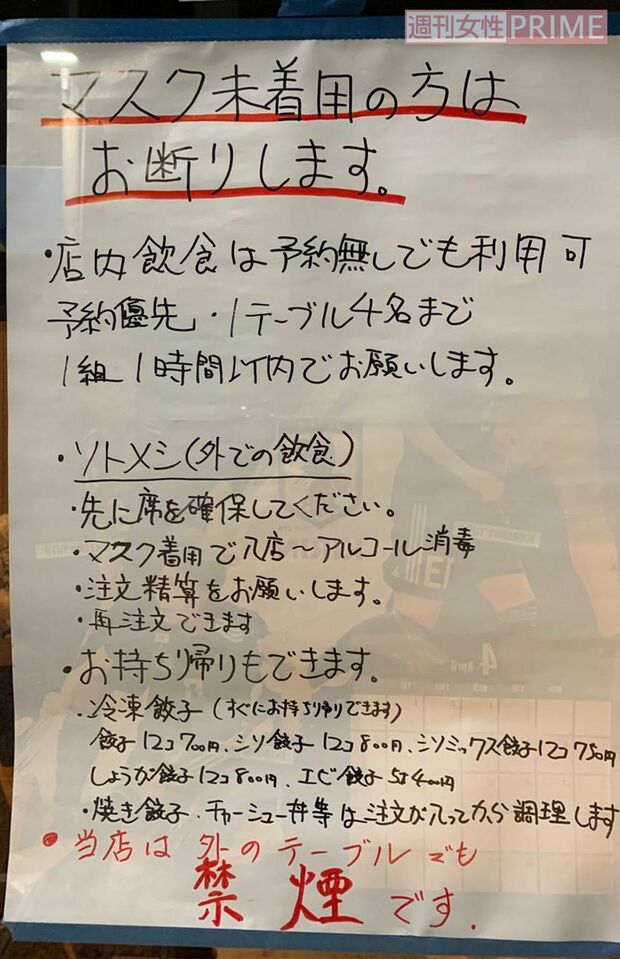 週刊女性PRIME
マスク未着用の方は
お断りします。
・店内飲食は予約無しでも利用可
予約優先・1テーブル4名まで
1組1時間以内でお願いします。
・ソトメシ(外での飲食)
・先に席を確保してください。
・マスク着用で入店～アルコール消毒
・注文精算をお願いします。
・再注文できます
・お持ち帰りもできます。
・冷凍餃子(すぐにお持ち帰りできます)
餃子12コ700円、シソ餃子12コ800円、シソミックス餃子12コ750円
しょうが餃子12コ800円、エビ餃子5コ400円
・焼き餃子、チャーシュー丼等は注文が入ってから調理します
・当店は外のテーブルでも
禁煙です.